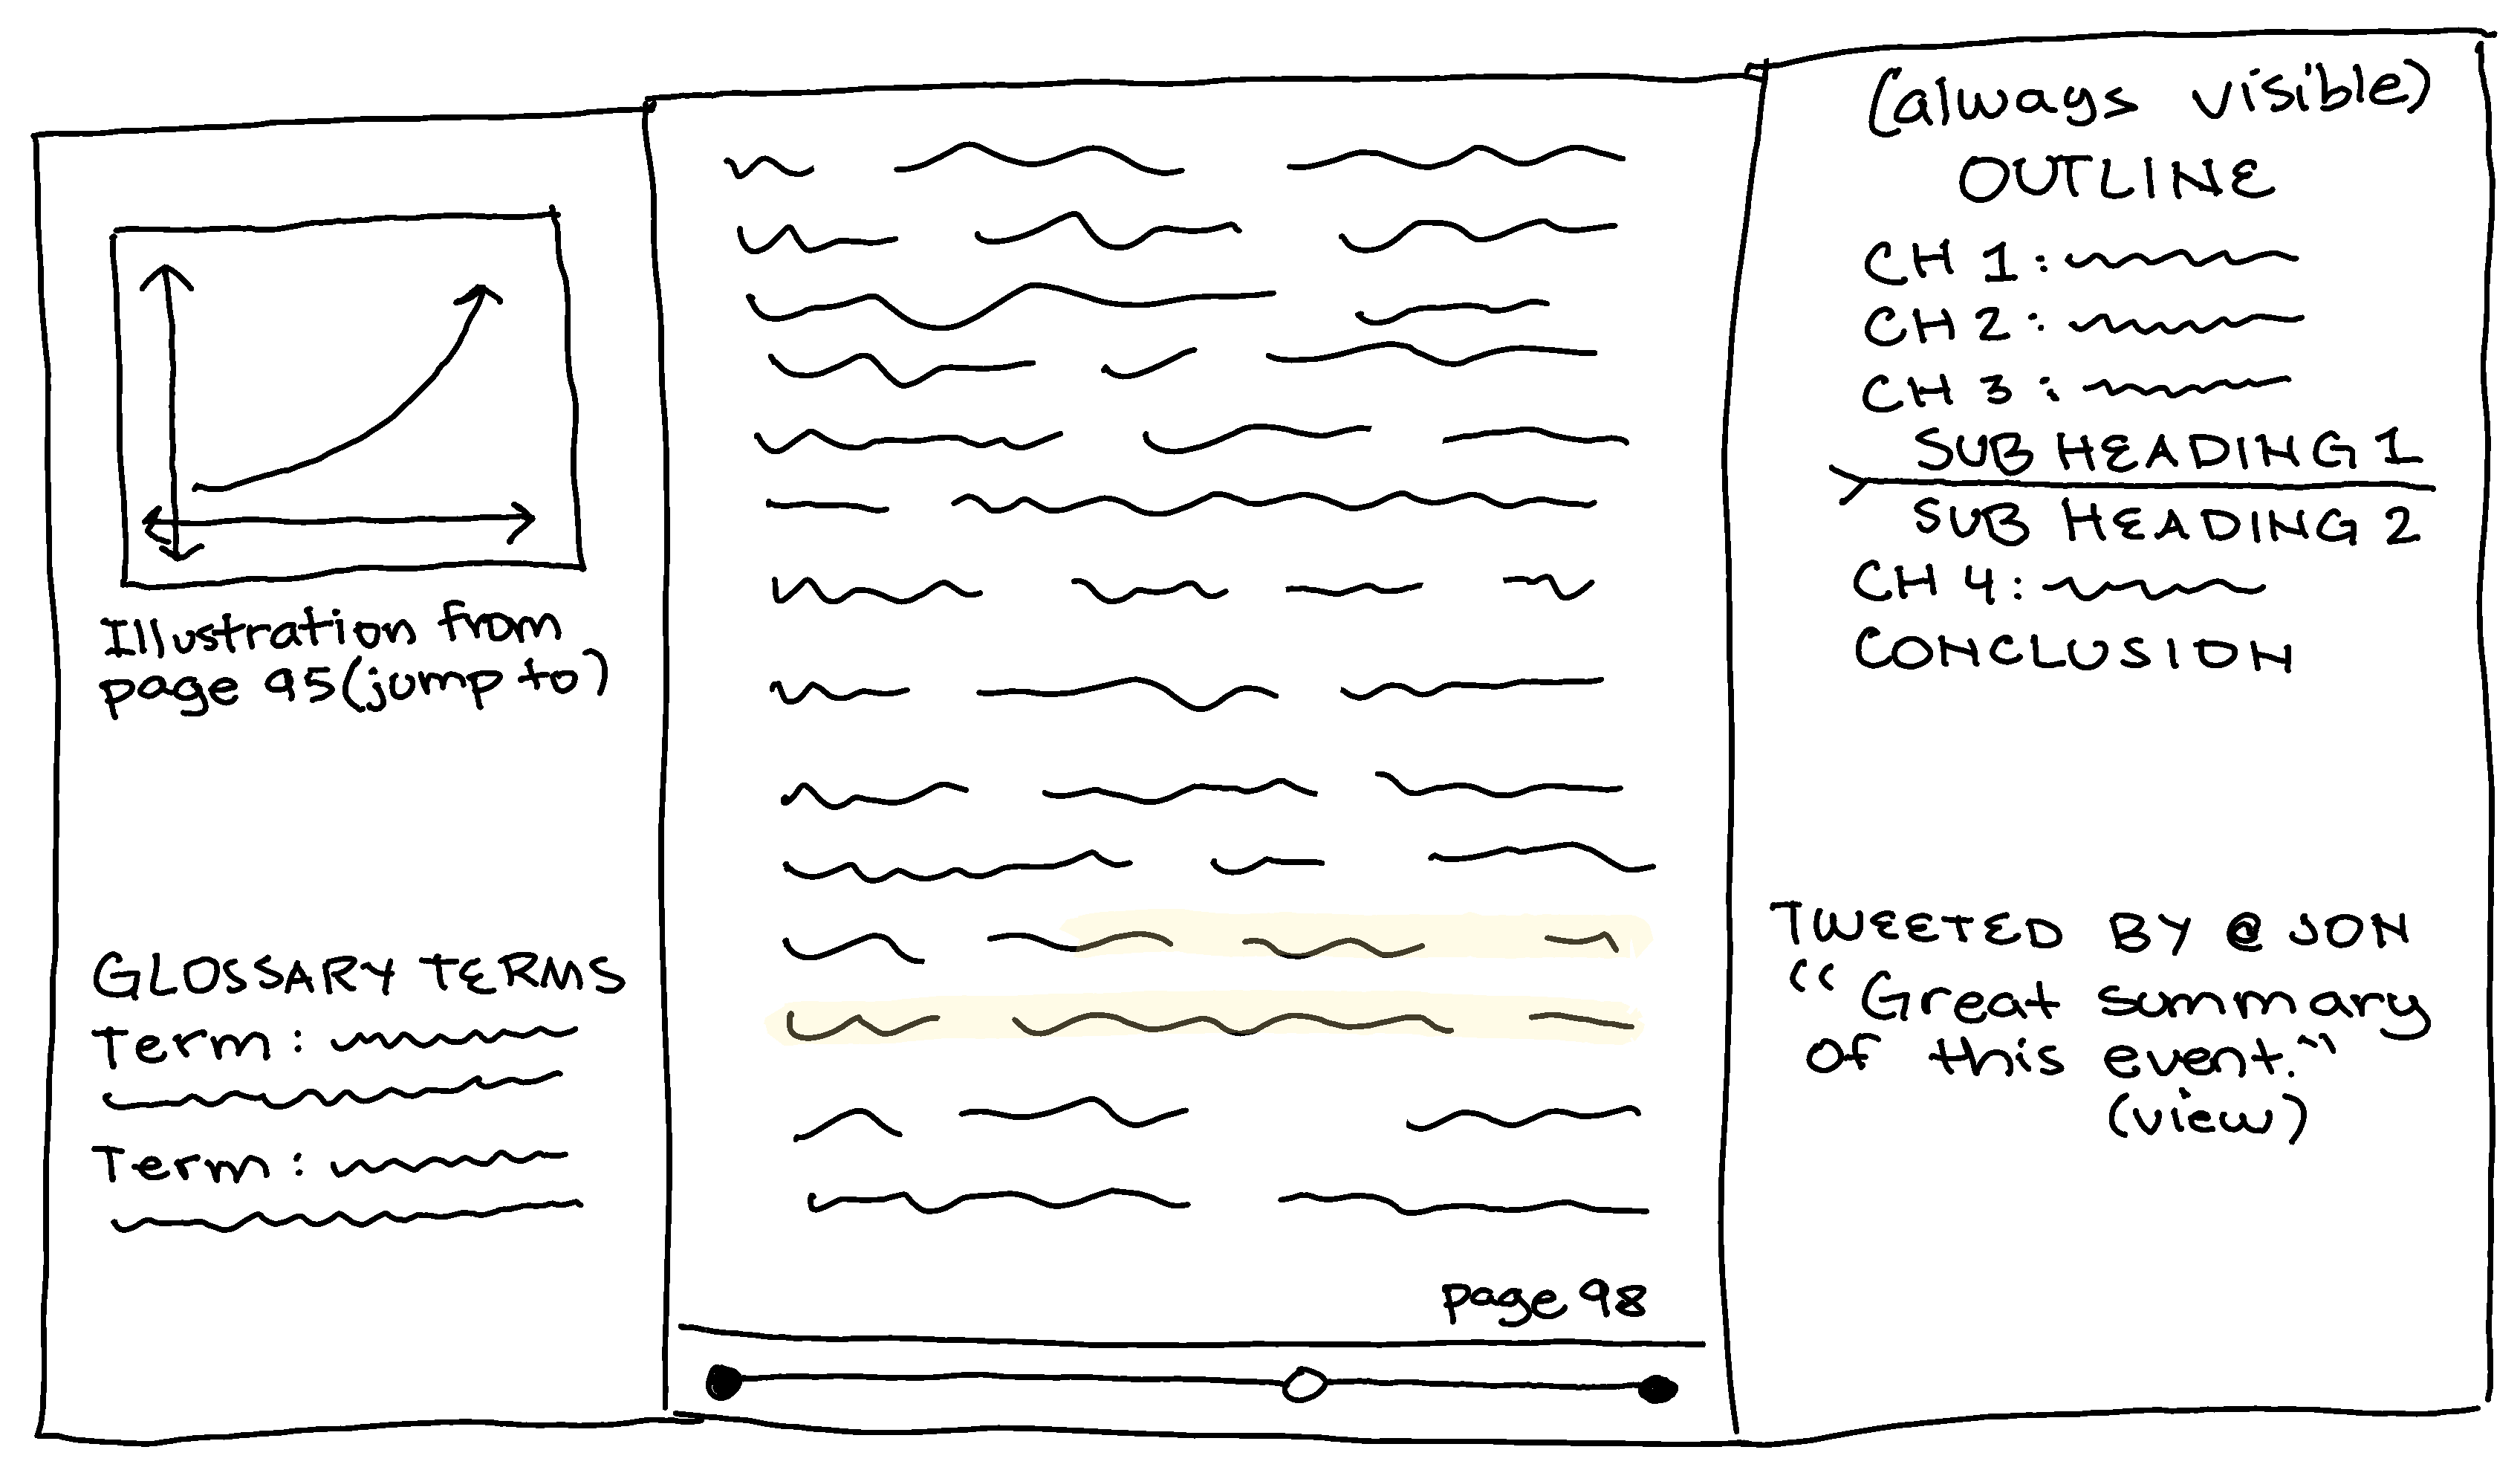 Illustration from
page 95 (jump to)
GLOSSARY TERMS
Term:
Term:
page 98
(always visible)
OUTLINE
CH 1:
CH 2:
CH 3:
SUB HEADING 1
SUB HEADING 2
CH 4:
CONCLUSION
TWEETED BY @JON
"Great summary
of this event."
(view)